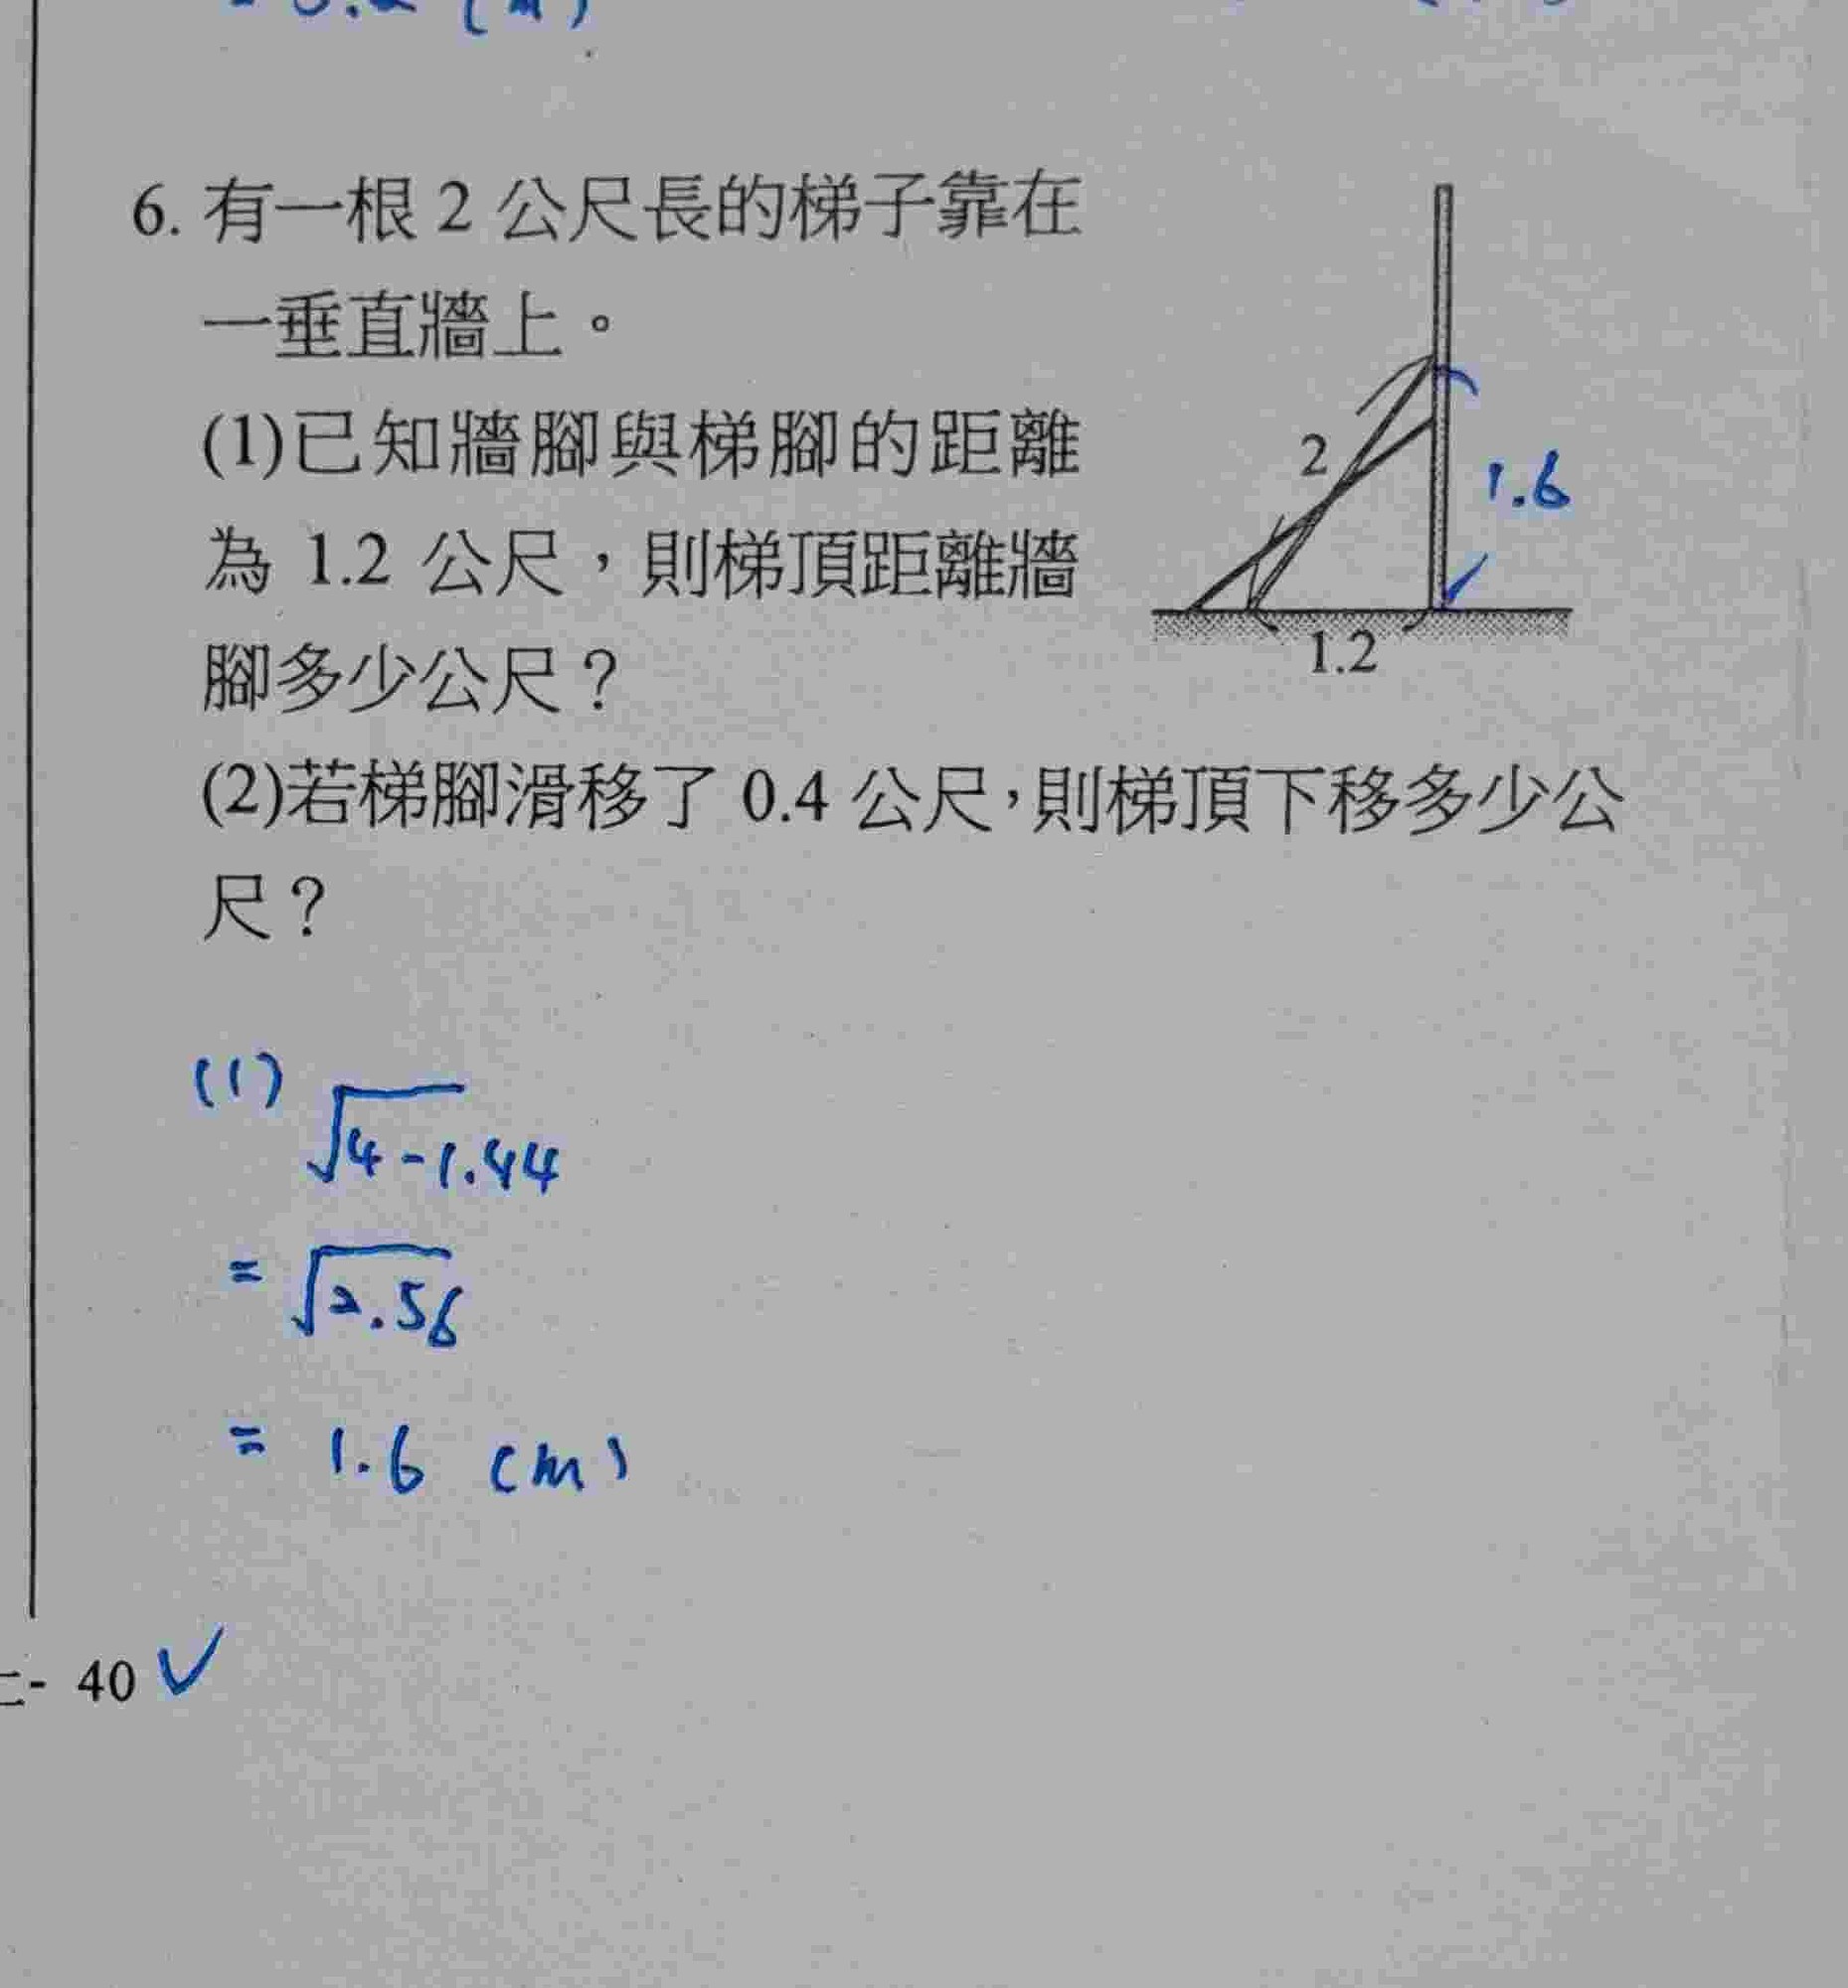 6. 有一根 2 公尺長的梯子靠在
一垂直牆上。
(1)已知牆腳與梯腳的距離
為 1.2 公尺，則梯頂距離牆
腳多少公尺？
(2)若梯腳滑移了 0.4 公尺，則梯頂下移多少公
尺？
2
1.6
1.2
(1) √4-1.44
= √2.56
= 1.6 (m)
- 40 ✓